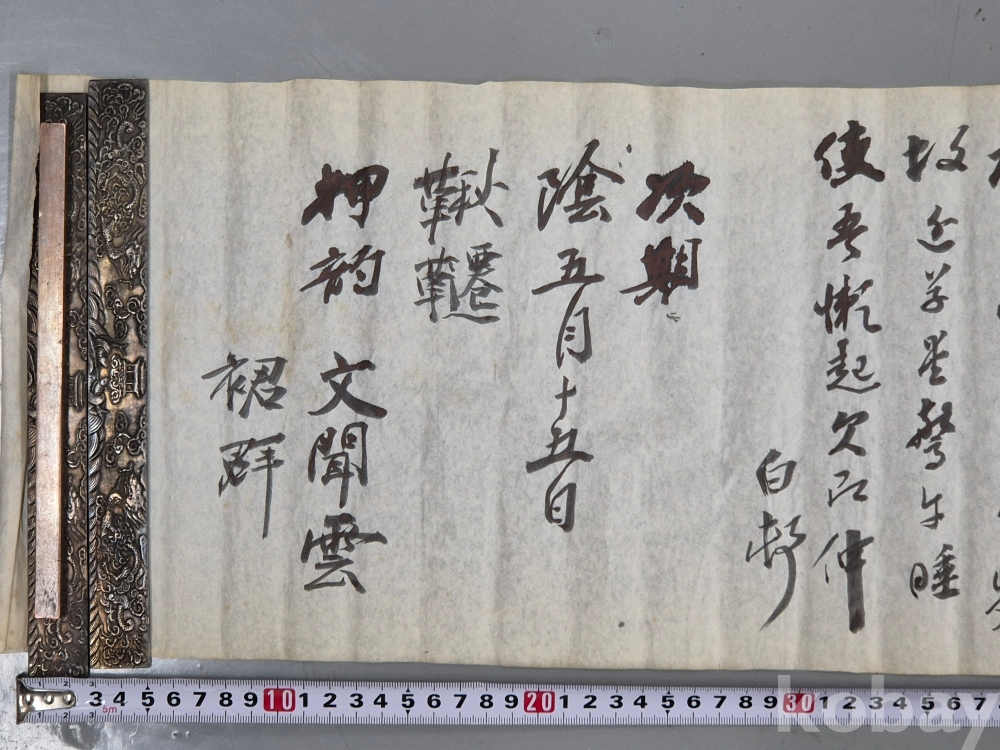 故 近 筆 墨 驚 午 睡
使 吾 懶 起 欠 又 伸
白
次期
陰五月十五日
鞦韆
押韵 文聞雲
裙群
3 4 5 6 7 8 9 10 1 2 3 4 5 6 7 8 9 20 1 2 3 4 5 6 7 8 9 30 1 2 3 4 5 6 7
5m
kobay